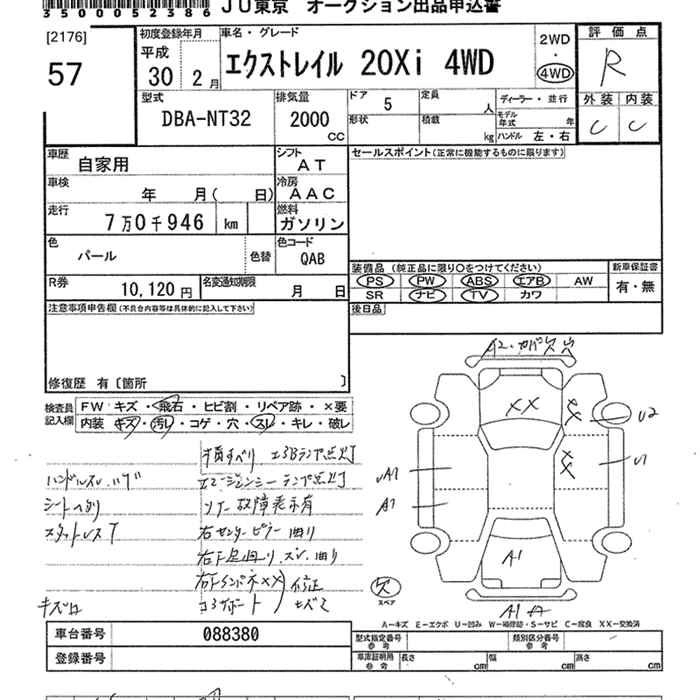 35000523 86 JU東京 オークション出品申込書
[2176]
57
初度登録年月
平成
30 2月
車名・グレード
エクストレイル 20Xi 4WD
2WD
・
4WD
評価点
R
外装 内装
C C
型式
DBA-NT32
排気量
2000
CC
ドア 5
定員 人
ディーラー・並行
形状
積載 kg
モデル年式 年
ハンドル 左・右
車歴
自家用
シフト
AT
セールスポイント(正常に機能するものに限ります)
車検 年 月( 日)
冷房
AAC
走行
7万0千946 km
燃料
ガソリン
色
パール
色替
色コード
QAB
装備品 (純正品に限り○をつけてください)
新車保証書
PS PW ABS エアB AW
有・無
SR ナビ TV カワ
R券
10,120円
名変通知期限
月 日
後日品
注意事項申告欄(不具合内容等は具体的に記入して下さい)
修復歴 有〔箇所 〕
検査員記入欄
FW キズ・飛石・ヒビ割・リペア跡・×要
内装 キズ・汚レ・コゲ・穴・スレ・キレ・破レ
エアBランプ点灯
エマージェンシーランプ点灯
シートヘタリ
ソナー故障表示有
スタットレスT
右センターピラー曲り
キズ口
コアサポート
A2
XX
XX
XX
U2
A1
U1
A1
A1
欠
スペア
A-キズ E-エクボ U-凹み W-補修跡・S-サビ C-腐食 XX-交換済
車台番号
088380
登録番号
型式指定番号
参考
類別区分番号
参考
車庫証明用
参考
長さ cm
幅 cm
高さ cm